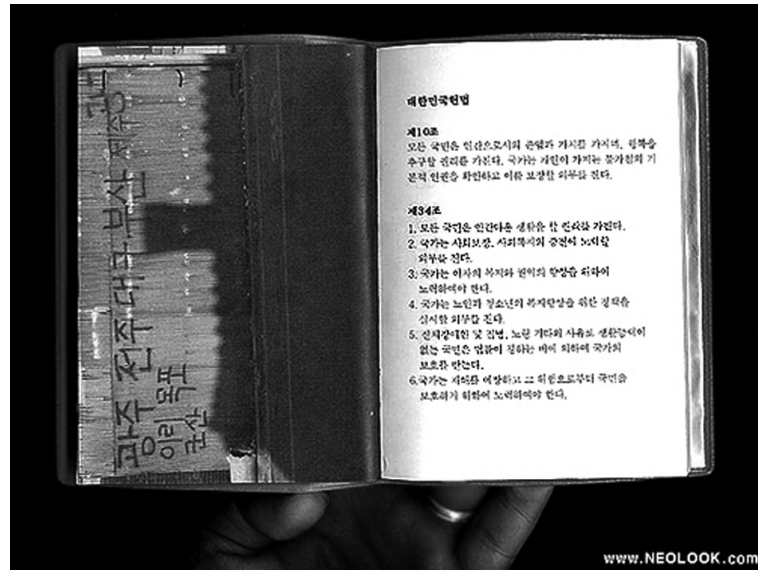 광주 전주 대구 부산 제주
이리 목포
군산
대한민국헌법
제10조
모든 국민은 인간으로서의 존엄과 가치를 가지며, 행복을
추구할 권리를 가진다. 국가는 개인이 가지는 불가침의 기
본적 인권을 확인하고 이를 보장할 의무를 진다.
제34조
1. 모든 국민은 인간다운 생활을 할 권리를 가진다.
2. 국가는 사회보장, 사회복지의 증진에 노력할
의무를 진다.
3. 국가는 여자의 복지와 권익의 향상을 위하여
노력하여야 한다.
4. 국가는 노인과 청소년의 복지향상을 위한 정책을
실시할 의무를 진다.
5. 신체장애인 및 질병, 노령 기타의 사유로 생활능력이
없는 국민은 법률이 정하는 바에 의하여 국가의
보호를 받는다.
6.국가는 재해를 예방하고 그 위험으로부터 국민을
보호하기 위하여 노력하여야 한다.
www.NEOLOOK.com